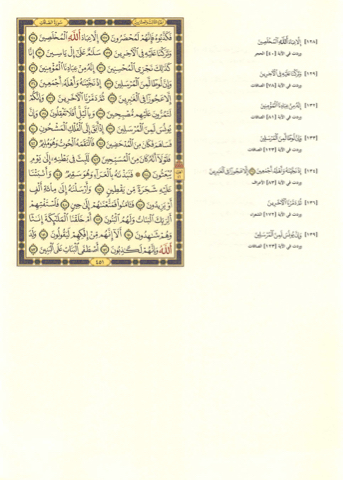 سُورَةُ الصَّافَّاتِ
فَكَذَّبُوهُ فَإِنَّهُمْ لَمُحْضَرُونَ ١٢٧ إِلَّا عِبَادَ ٱللَّهِ ٱلْمُخْلَصِينَ ١٢٨
وَتَرَكْنَا عَلَيْهِ فِي ٱلْـَٔاخِرِينَ ١٢٩ سَلَٰمٌ عَلَىٰٓ إِلْ يَاسِينَ ١٣٠ إِنَّا
كَذَٰلِكَ نَجْزِي ٱلْمُحْسِنِينَ ١٣١ إِنَّهُۥ مِنْ عِبَادِنَا ٱلْمُؤْمِنِينَ ١٣٢
وَإِنَّ لُوطًا لَّمِنَ ٱلْمُرْسَلِينَ ١٣٣ إِذْ نَجَّيْنَٰهُ وَأَهْلَهُۥٓ أَجْمَعِينَ ١٣٤
إِلَّا عَجُوزًا فِي ٱلْغَٰبِرِينَ ١٣٥ ثُمَّ دَمَّرْنَا ٱلْـَٔاخَرِينَ ١٣٦ وَإِنَّكُمْ
لَتَمُرُّونَ عَلَيْهِم مُّصْبِحِينَ ١٣٧ وَبِٱلَّيْلِ أَفَلَا تَعْقِلُونَ ١٣٨ وَإِنَّ
يُونُسَ لَمِنَ ٱلْمُرْسَلِينَ ١٣٩ إِذْ أَبَقَ إِلَى ٱلْفُلْكِ ٱلْمَشْحُونِ ١٤٠
فَسَاهَمَ فَكَانَ مِنَ ٱلْمُدْحَضِينَ ١٤١ فَٱلْتَقَمَهُ ٱلْحُوتُ وَهُوَ مُلِيمٌ ١٤٢
فَلَوْلَآ أَنَّهُۥ كَانَ مِنَ ٱلْمُسَبِّحِينَ ١٤٣ لَلَبِثَ فِي بَطْنِهِۦٓ إِلَىٰ يَوْمِ
يُبْعَثُونَ ١٤٤ فَنَبَذْنَٰهُ بِٱلْعَرَآءِ وَهُوَ سَقِيمٌ ١٤٥ وَأَنۢبَتْنَا
عَلَيْهِ شَجَرَةً مِّن يَقْطِينٍ ١٤٦ وَأَرْسَلْنَٰهُ إِلَىٰ مِا۟ئَةِ أَلْفٍ
أَوْ يَزِيدُونَ ١٤٧ فَـَٔامَنُوا۟ فَمَتَّعْنَٰهُمْ إِلَىٰ حِينٍ ١٤٨ فَٱسْتَفْتِهِمْ
أَلِرَبِّكَ ٱلْبَنَاتُ وَلَهُمُ ٱلْبَنُونَ ١٤٩ أَمْ خَلَقْنَا ٱلْمَلَٰٓئِكَةَ إِنَٰثًا
وَهُمْ شَٰهِدُونَ ١٥٠ أَلَآ إِنَّهُم مِّنْ إِفْكِهِمْ لَيَقُولُونَ ١٥١ وَلَدَ
ٱللَّهُ وَإِنَّهُمْ لَكَٰذِبُونَ ١٥٢ أَصْطَفَى ٱلْبَنَاتِ عَلَى ٱلْبَنِينَ ١٥٣
٤٥١
[١٢٨] إِلَّا عِبَادَ ٱللَّهِ ٱلْمُخْلَصِينَ
وردت في الآية [٤٠] الحجر
[١٢٩] وَتَرَكْنَا عَلَيْهِ فِي ٱلْـَٔاخِرِينَ
وردت في الآية [٧٨] الصافات
[١٣٢] إِنَّهُۥ مِنْ عِبَادِنَا ٱلْمُؤْمِنِينَ
وردت في الآية [٨١] الصافات
[١٣٣] وَإِنَّ لُوطًا لَّمِنَ ٱلْمُرْسَلِينَ
وردت في الآية [١٢٣] الصافات
[١٣٤] إِذْ نَجَّيْنَٰهُ وَأَهْلَهُۥٓ أَجْمَعِينَ إِلَّا عَجُوزًا فِي ٱلْغَٰبِرِينَ
وردت في الآية [٨٣] الأعراف
[١٣٦] ثُمَّ دَمَّرْنَا ٱلْـَٔاخَرِينَ
وردت في الآية [١٧٢] الشعراء
[١٣٩] وَإِنَّ يُونُسَ لَمِنَ ٱلْمُرْسَلِينَ
وردت في الآية [١٢٣] الصافات